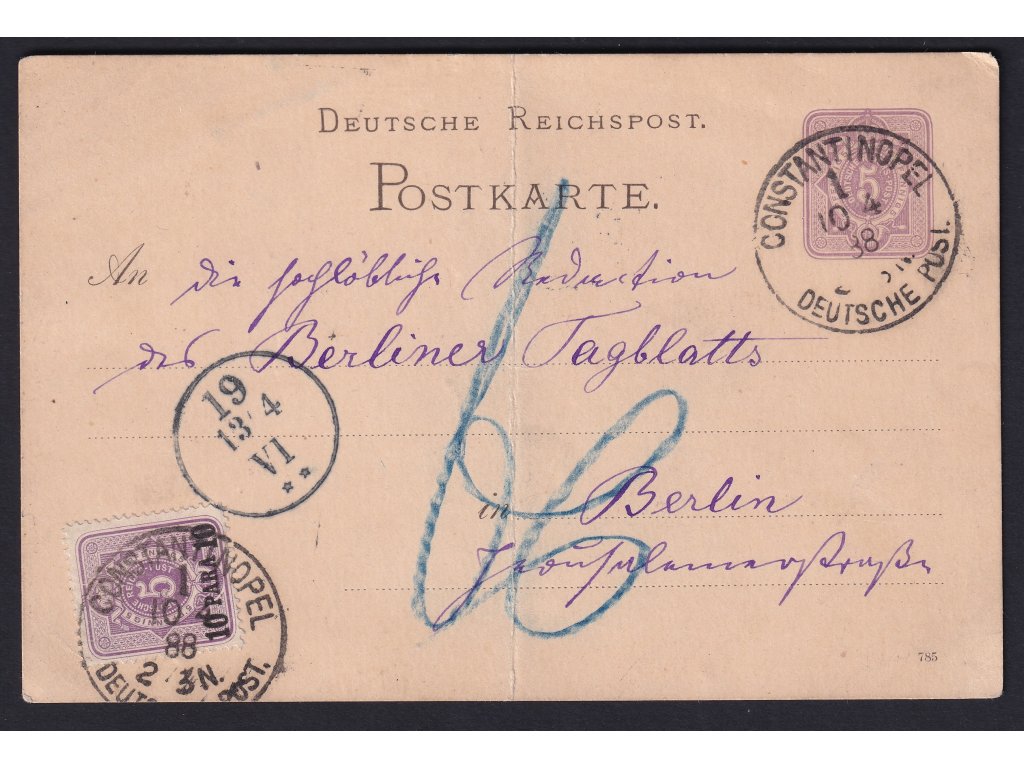 DEUTSCHE REICHSPOST.
POSTKARTE.
CONSTANTINOPEL
1
10 4
88
DEUTSCHE POST.
5
An die hochlöbliche Redaction
des Berliner Tagblatts
19
13/4
VI
**
in Berlin
Jerusalemerstraße
CONSTANTINOPEL
1
10
88
2 3 N.
DEUTSCHE POST.
5
10 PARA 10
785